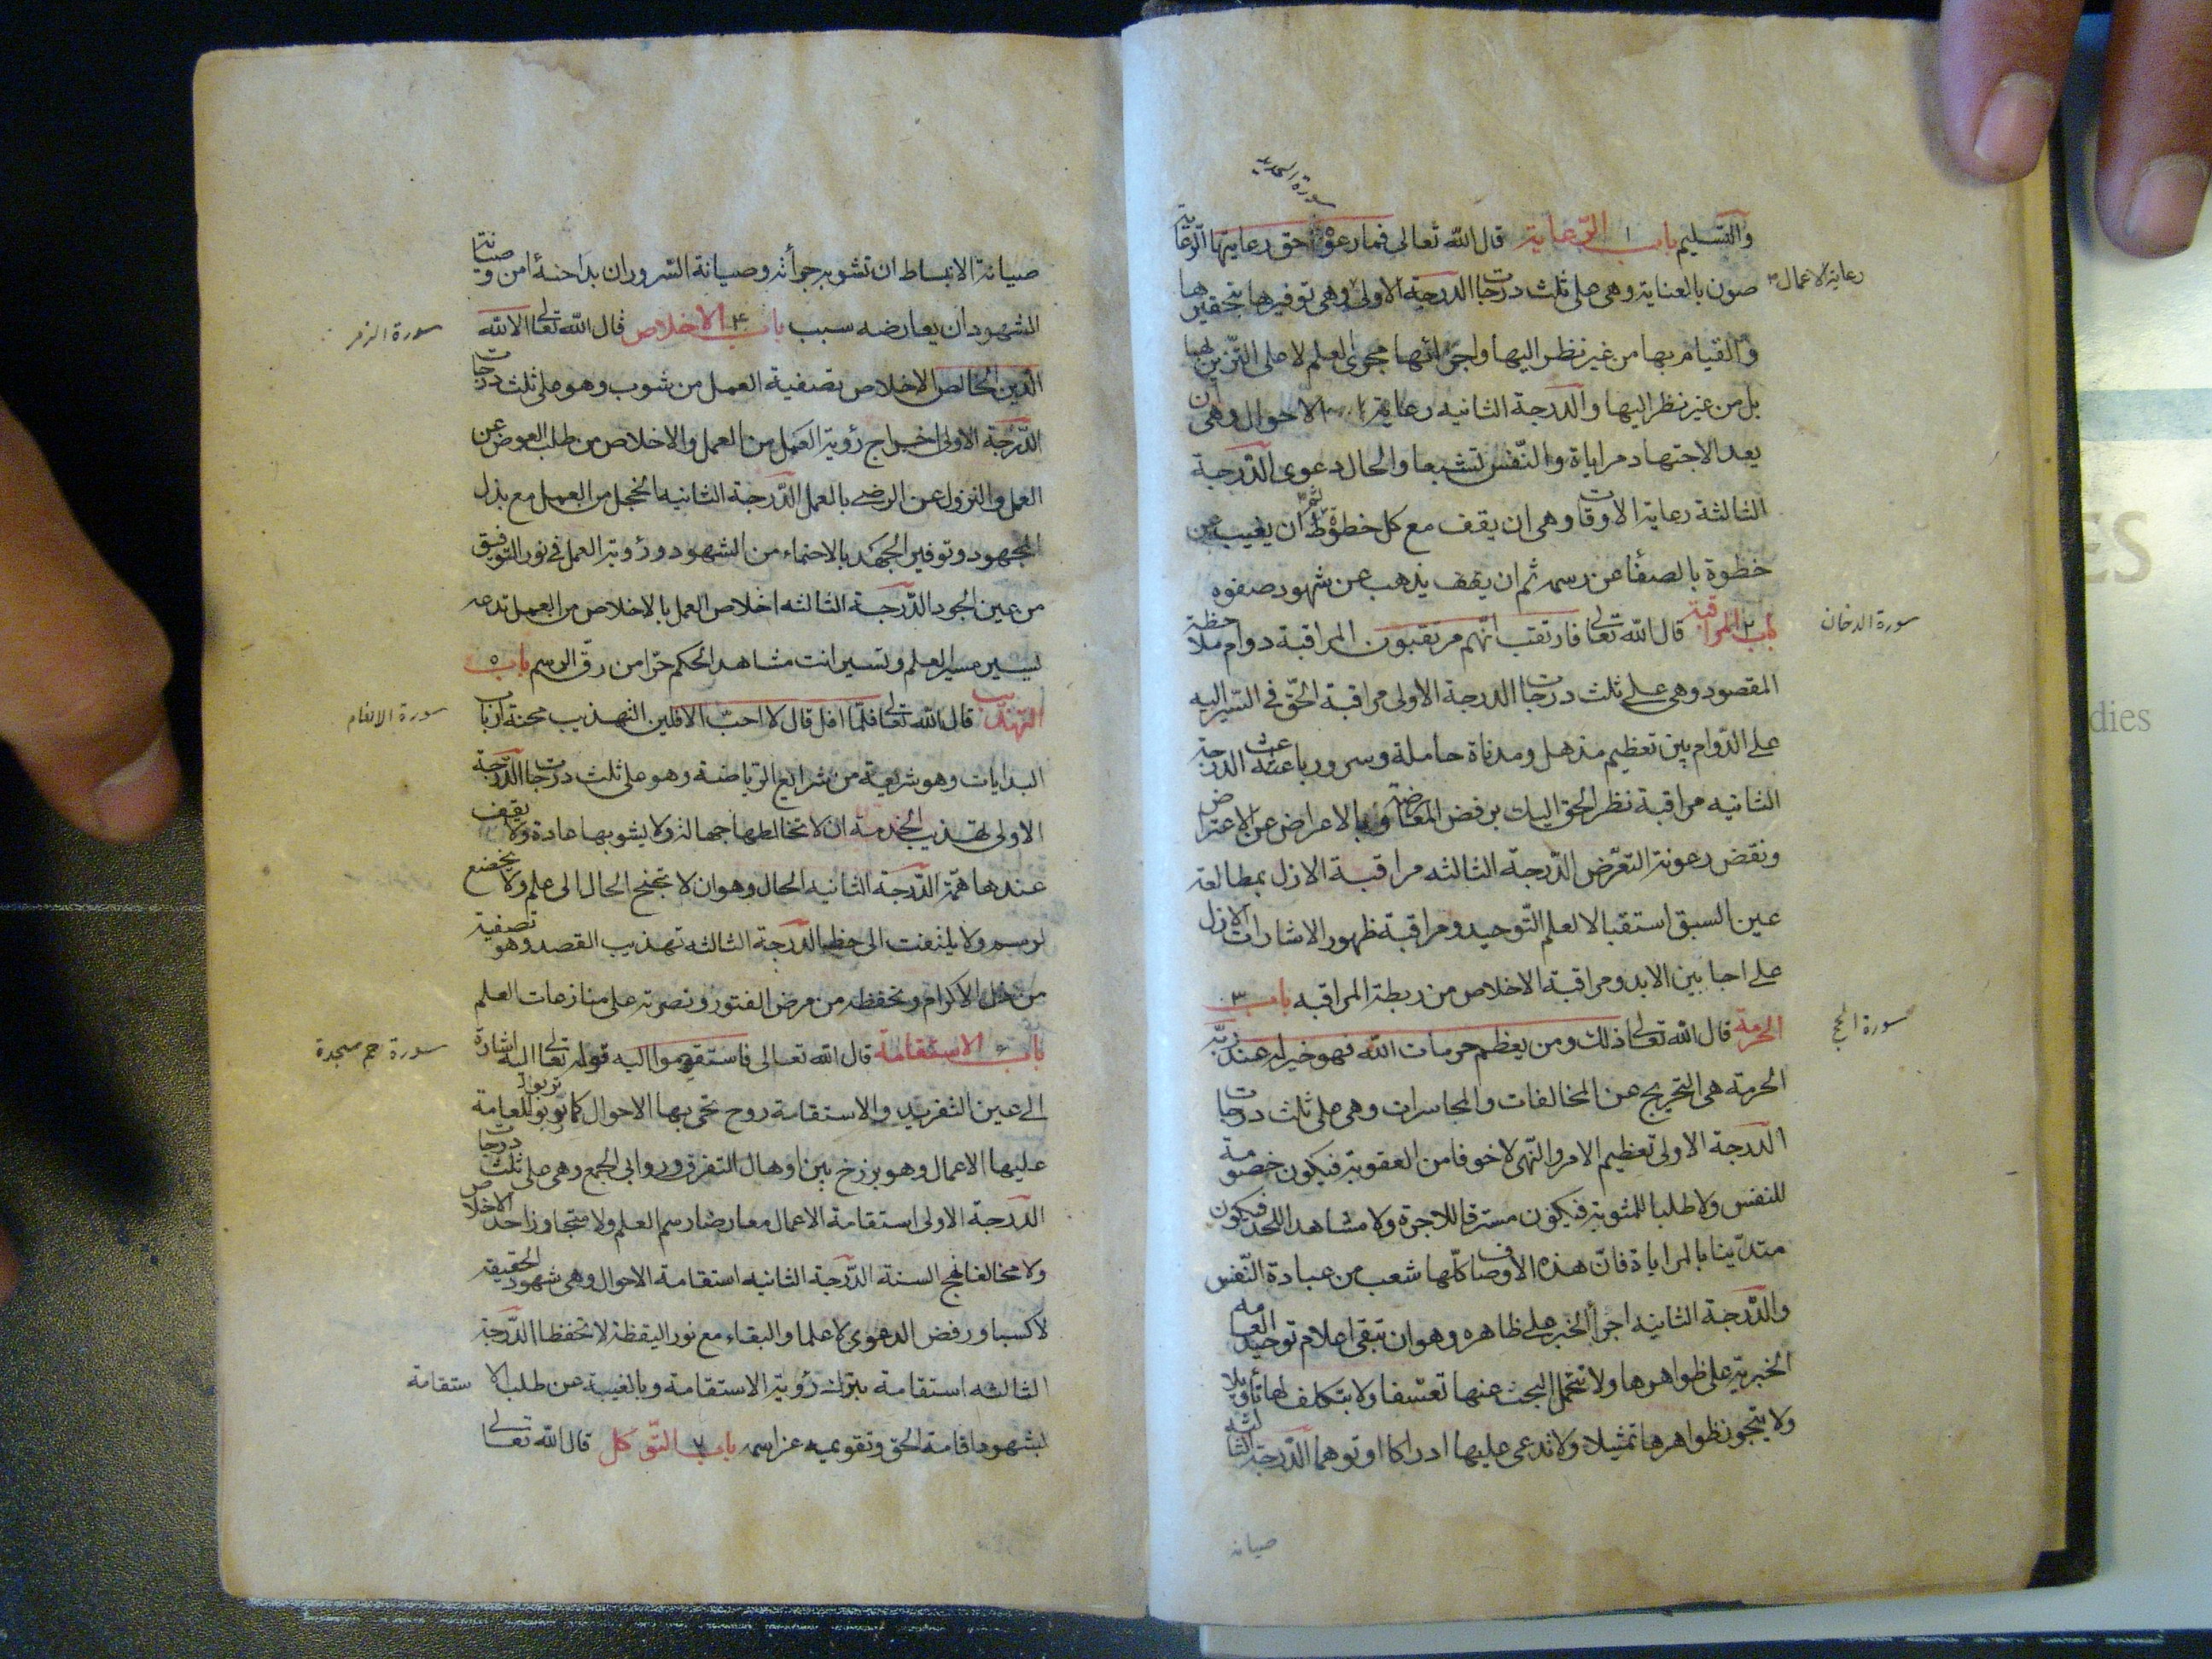 سورة الحديد
والتسليم باب ١ الرّعاية قال الله تعالى فما رعوها حق رعايتها الرّعاية
صون بالعناية وهى على ثلث درجات الدرجة الاولى وهى توفيرها بتحقيرها
رعاية الاعمال
والقيام بها من غير نظر اليها واجرائها مجرى العلم لا على التزين لها
بل من غير نظر اليها والدرجة الثانيه رعاية الاحوال وهى ان
يعد الاجتهاد مراياة والنّفس تشبعا والحال دعوى الدّرجة
الثالثة رعاية الاوقات وهى ان يقف مع كل خطوة ثم ان يغيب عن
خطوة بالصفأ عن رسمه ثم ان يقف يذهب عن شهود صفوه
باب ٢ المراقبة قال الله تعالى فارتقب انّهم مرتقبون المراقبة دوام ملاحظة
سورة الدخان
المقصود وهى على ثلث درجات الدرجة الاولى مراقبة الحّق فى السّير اليه
على الدّوام بين تعظيم مذهل ومدناة حاملة وسرور باعث الدرجة
الثانيه مراقبة نظر الحق اليك برفض المعارضة وبالاعراض عن الاعتراض
ونقض رعونة التعرّض الدّرجة الثالثه مراقبة الازل بمطالعة
عين السبق استقبالا لعلم التّوحيد ومراقبة ظهور الاشارات الازل
على احايين الابد ومراقبة الاخلاص من ربطة المراقبه باب ٣
الحرمة قال الله تعالى ذلك ومن يعظم حرمات الله فهو خير له عند ربّه
سورة الحج
الحرمة هى التحريج عن المخالفات والمجاسرات وهى على ثلث درجات
الدرجة الاولى تعظيم الامر والنّهى لا خوفا من العقوبة فيكون خصومة
للنفس ولا طلبا للمثوبة فيكون مسترقا للاجرة ولا مشاهدا لاحد فيكون
متديّنا بالمراياة فانّ هذه الاوصاف كلّها شعب من عبادة النّفس
والدّرجة الثانيه اجرأ الخبر على ظاهره وهو ان تبقى اعلام توحيد العامه
الخبريّة على ظواهرها ولا يتحمل البحث عنها تعسّفا ولا يتكلف لها تأويلا
ولا يتجوز ظواهرها تمثيلا ولا يدعى عليها ادراكا او توهما الدّرجة الثالثه
صيانه
صيانة الانبساط ان تشوبه جرأة وصيانة السّرور ان يداخله أمن وصيانة
الشهود ان يعارضه سبب باب ٤ الاخلاص قال الله تعالى الا لله
سورة الزمر
الدّين الخالص الاخلاص تصفية العمل من شوب وهو على ثلث درجات
الدّرجة الاولى اخراج رؤية العمل من العمل والاخلاص من طلب العوض عن
العمل والنزول عن الرضى بالعمل الدّرجة الثانيه الخجل من العمل مع بذل
المجهود وتوفير الجهد بالاحتماء من الشهود ورؤية العمل فى نور التوفيق
من عين الجود الدّرجة الثالثه اخلاص العمل بالاخلاص من العمل تدعه
يسير مسير العلم وتسير انت مشاهدا لحكم حرّا من رقّ الرسم باب ٥
التهذيب قال الله تعالى فلمّا افل قال لا احبّ الافلين التهذيب محنة ارباب
سورة الانعام
البدايات وهو شريعة من شرايع الرّياضة وهو على ثلث درجات الدّرجة
الاولى تهذيب الخدمة ان لا تخالطها جهالة ولا يشوبها عادة ولا يقف
عندها همّة الدّرجة الثانيه الحال وهو ان لا يجنح الحال الى علم ولا يخضع
لرسم ولا يلتفت الى حظ الدّرجة الثالثه تهذيب القصد وهو تصفيته
من ذل الاكراه وتحفظه من مرض الفتور ونصرته على منازعات العلم
باب ٦ الاستقامة قال الله تعالى فاستقيموا اليه قوله تعالى اليه اشارة
سورة حم سجدة
الى عين التفريد والاستقامة روح تحيى بها الاحوال كما تربو للعامة
عليها الاعمال وهو برزخ بين اوهال التفرق وروابى الجمع وهى على ثلث درجات
الدّرجة الاولى استقامة الاعمال معارضا رسم العلم ولا متجاوزا حد الاخلاص
ولا مخالفا نهج السنة الدّرجة الثانيه استقامة الاحوال وهى شهود الحقيقة
لا كسبا ورفض الدعوى لا علما والبقاء مع نور اليقظة لا تحفظا الدّرجة
الثالثه استقامة بترك رؤية الاستقامة وبالغيبة عن طلب الاستقامة
بشهود اقامة الحق وتقويمه عز اسمه باب ٧ التّوكل قال الله تعالى